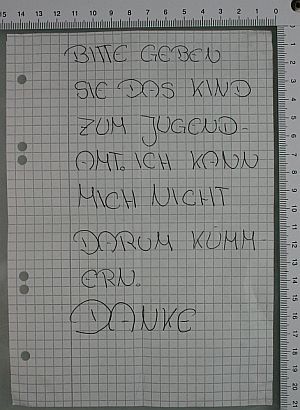 15 14 13 12 11 10 9 8 7 6 5 4 3 2 1 0
BITTE GEBEN
SIE DAS KIND
ZUM JUGEND-
AMT. ICH KANN
MICH NICHT
DARUM KÜMM-
ERN.
DANKE
1
2
3
4
5
6
7
8
9
10
11
12
13
14
15
16
17
18
19
20
21